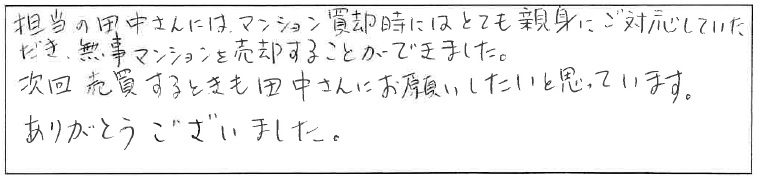 担当の田中さんには、マンション買却時にはとても親身にご対応していた
だき、無事マンションを売却することができました。
次回売買するときも田中さんにお願いしたいと思っています。
ありがとうございました。